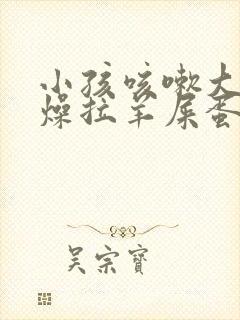 小孩咳嗽大
燥拉羊屎蛋
吴宗宝